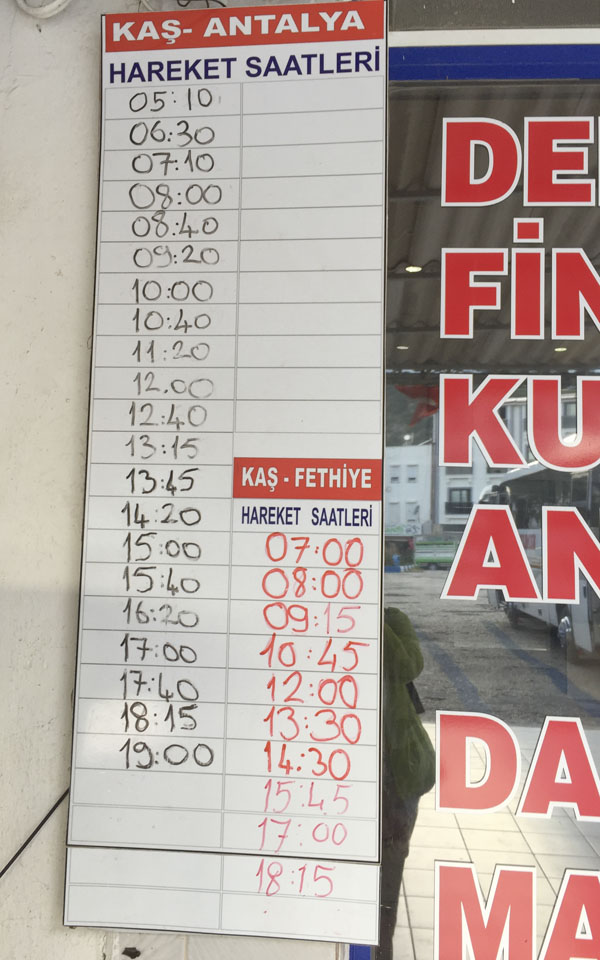 KAŞ- ANTALYA
HAREKET SAATLERİ
05:10
06:30
07:10
08:00
08:40
09:20
10:00
10:40
11:20
12.00
12:40
13:15
13:45
14:20
15:00
15:40
16:20
17:00
17:40
18:15
19:00
KAŞ - FETHİYE
HAREKET SAATLERİ
07:00
08:00
09:15
10:45
12:00
13:30
14:30
15:45
17:00
18:15
FİN
KU
AN
DA
MA